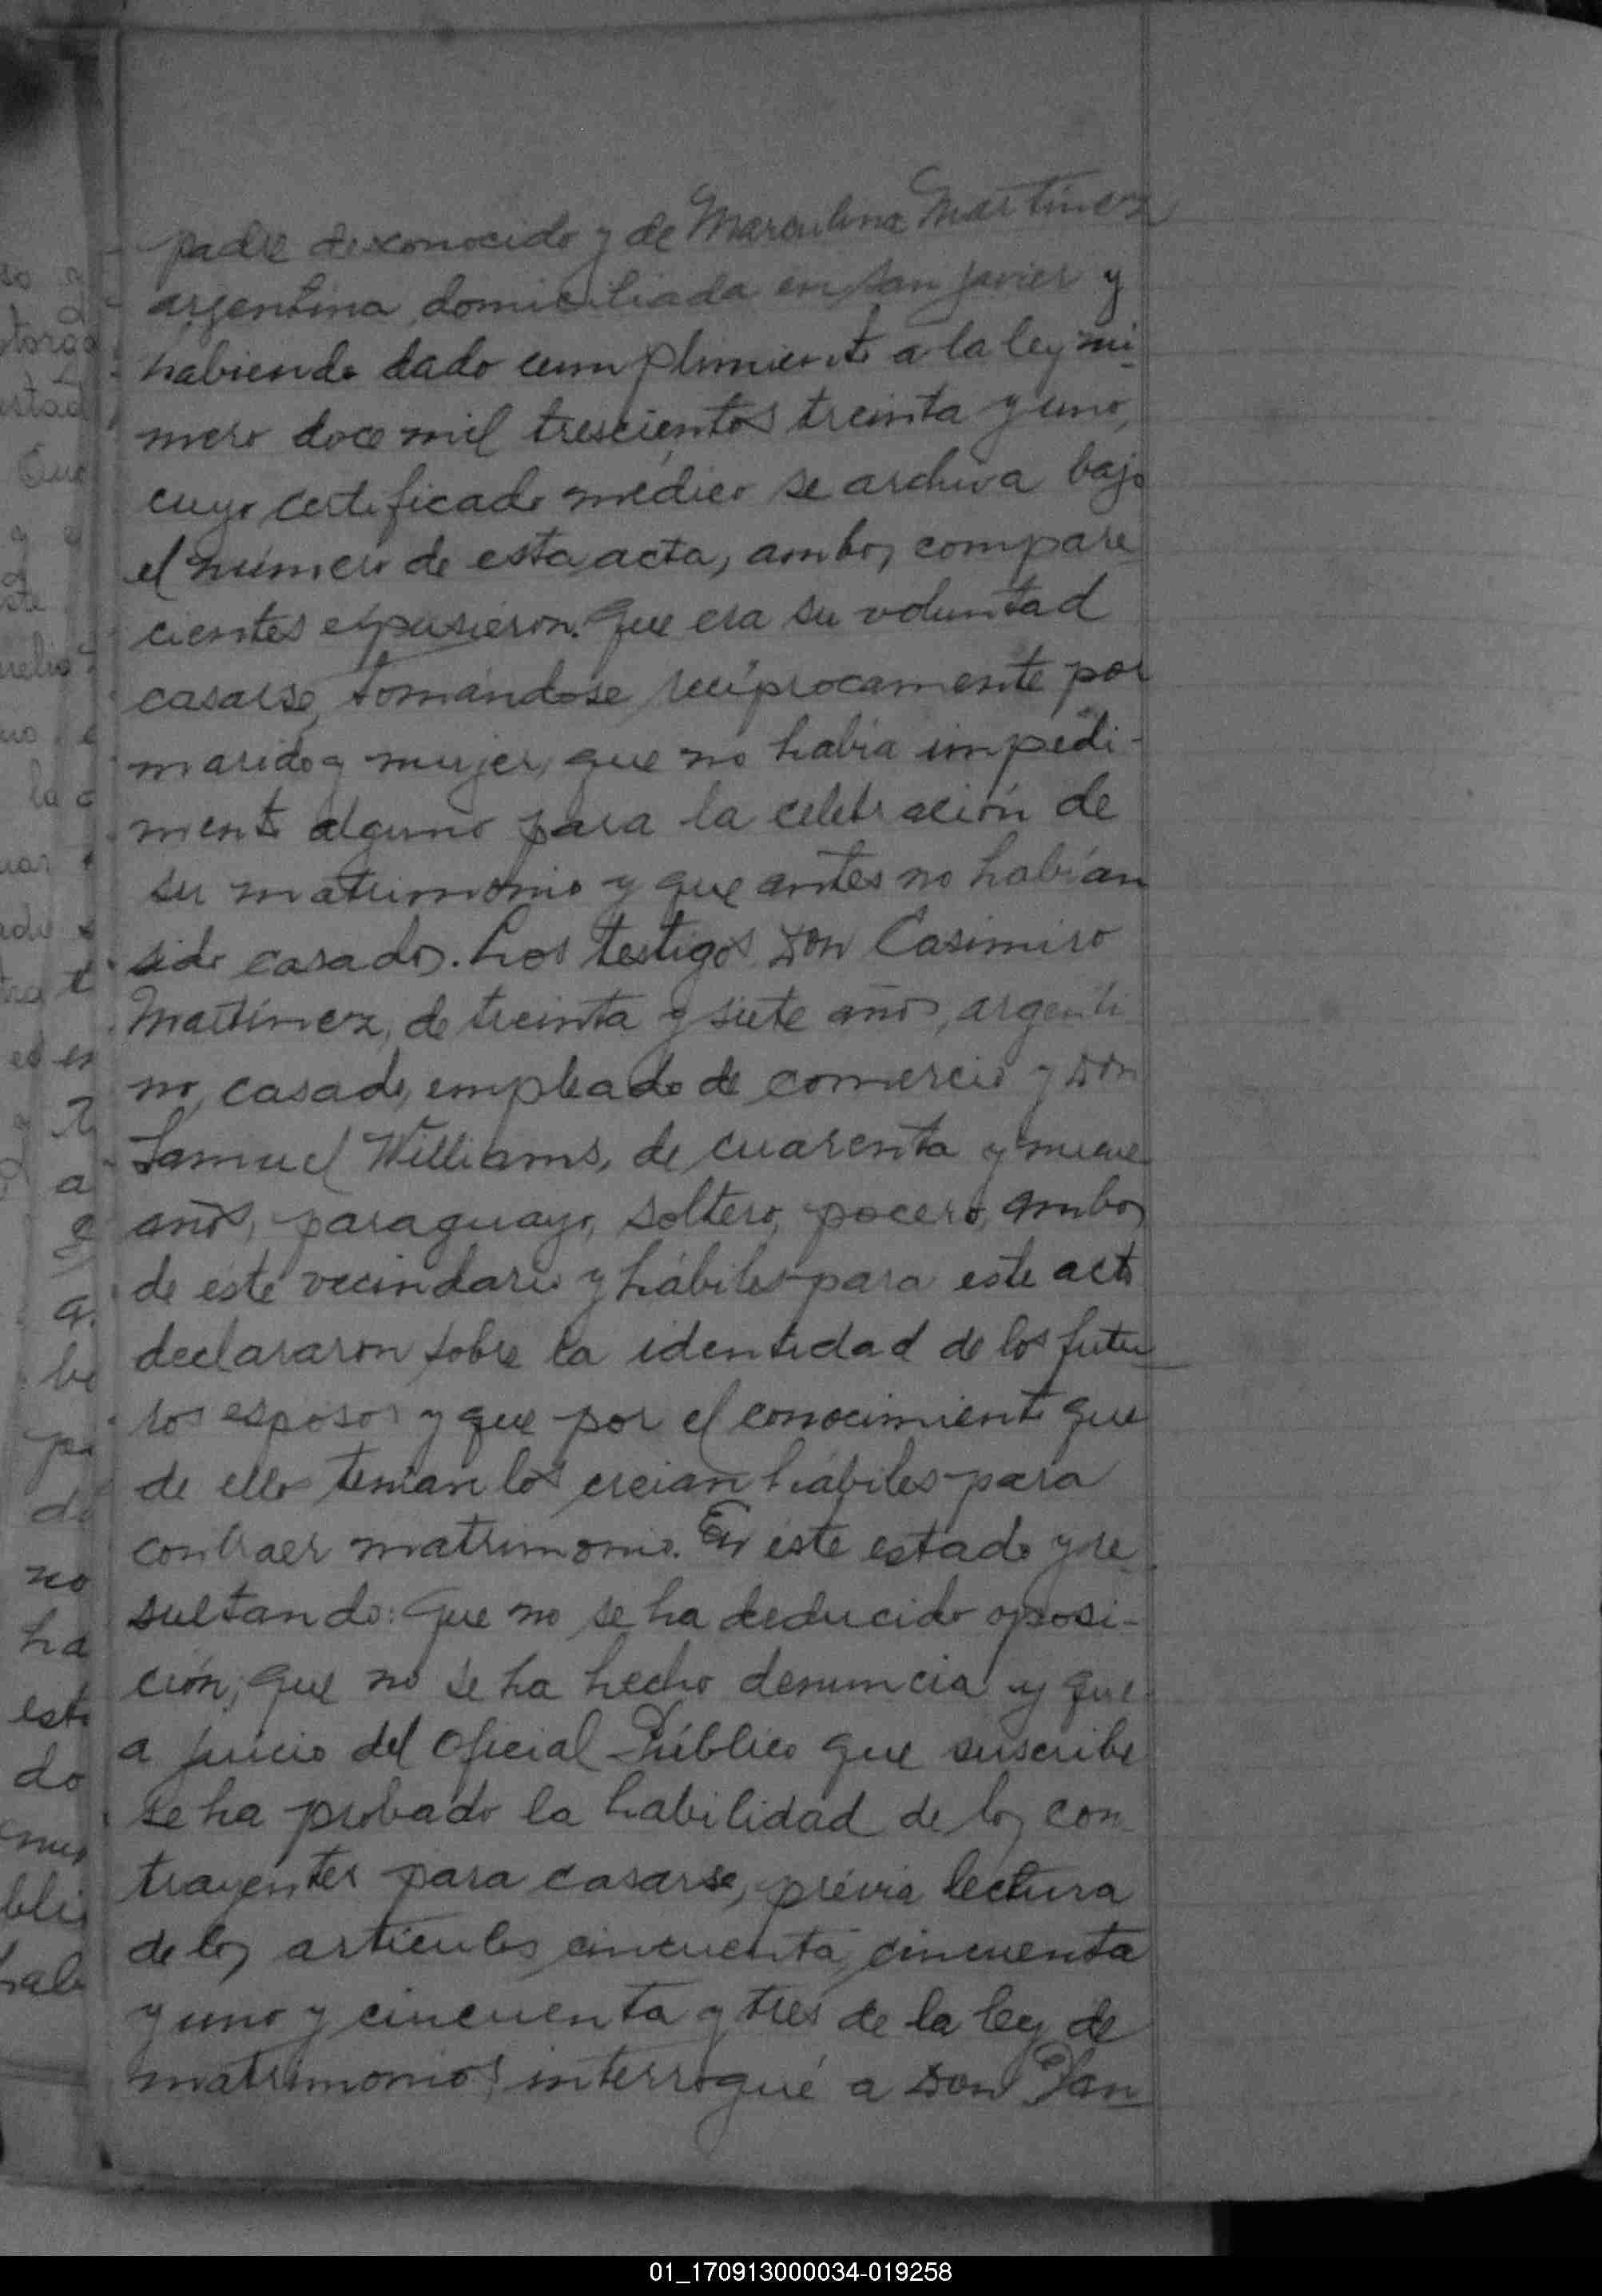 padre desconocido y de Marculina Martínez
argentina, domiciliada en San Javier y
habiendo dado cumplimiento a la ley nú-
mero doce mil trescientos treinta y uno,
cuyo certificado médico se archiva bajo
el número de esta acta, ambos compare
cientes expusieron: Que era su voluntad
casarse, tomándose recíprocamente por
marido y mujer, que no había impedi-
mento alguno para la celebración de
su matrimonio y que antes no habían
sido casados. Los testigos Don Casimiro
Martínez, de treinta y siete años, argenti
no, casado, empleado de comercio y Don
Samuel Williams, de cuarenta y nueve
años, paraguayo, soltero, pocero, ambos
de este vecindario y hábiles para este acto
declararon sobre la identidad de los futu
ros esposos y que por el conocimiento que
de ellos tenían los creían hábiles para
contraer matrimonio. En este estado y re
sultando: Que no se ha deducido oposi-
ción; que no se ha hecho denuncia y que
a juicio del Oficial Público que suscribe
se ha probado la habilidad de los con
trayentes para casarse, previa lectura
de los artículos cincuenta, cincuenta
y uno y cincuenta y tres de la ley de
matrimonio, interrogué a Don
01_170913000034-019258